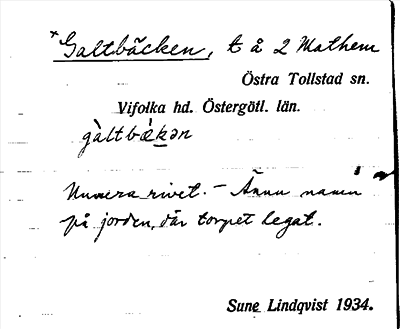 *Galtbäcken, t å 2 Mathem
Östra Tollstad sn.
Vifolka hd. Östergötl. län.
gàltbæ̀kən
Numera rivet. – Ännu namn
på jorden, där torpet legat.
Sune Lindqvist 1934.